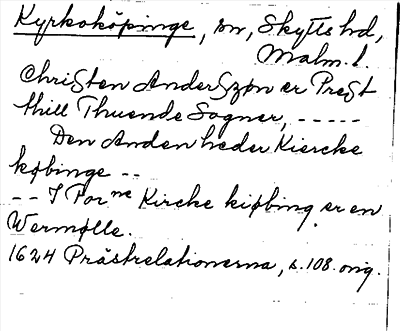 Kyrkoköpinge, sn, Skytts hd,
Malm. l.
Christen Anderszøn er Prest
thill Thuende Sogner, -----
Den Anden heder Kiercke
købinge --
-- I For.ne Kircke kiøbing er en
Wermølle.
1624 Prästrelationerna, s. 108. orig.